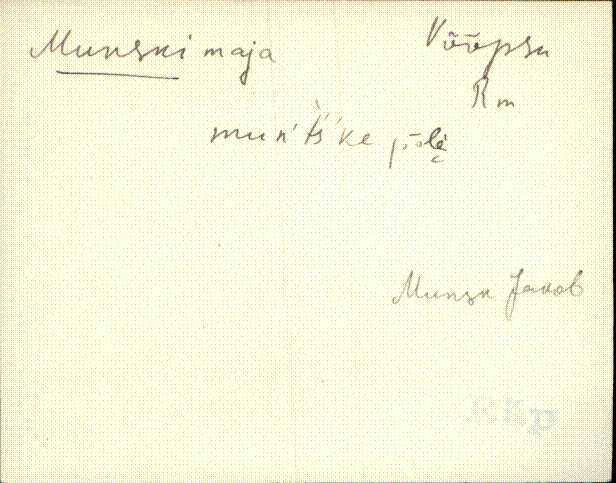 Munski maja
Võõpsu
Rm
mun't's'ke
Munsk Jakob
Rkp